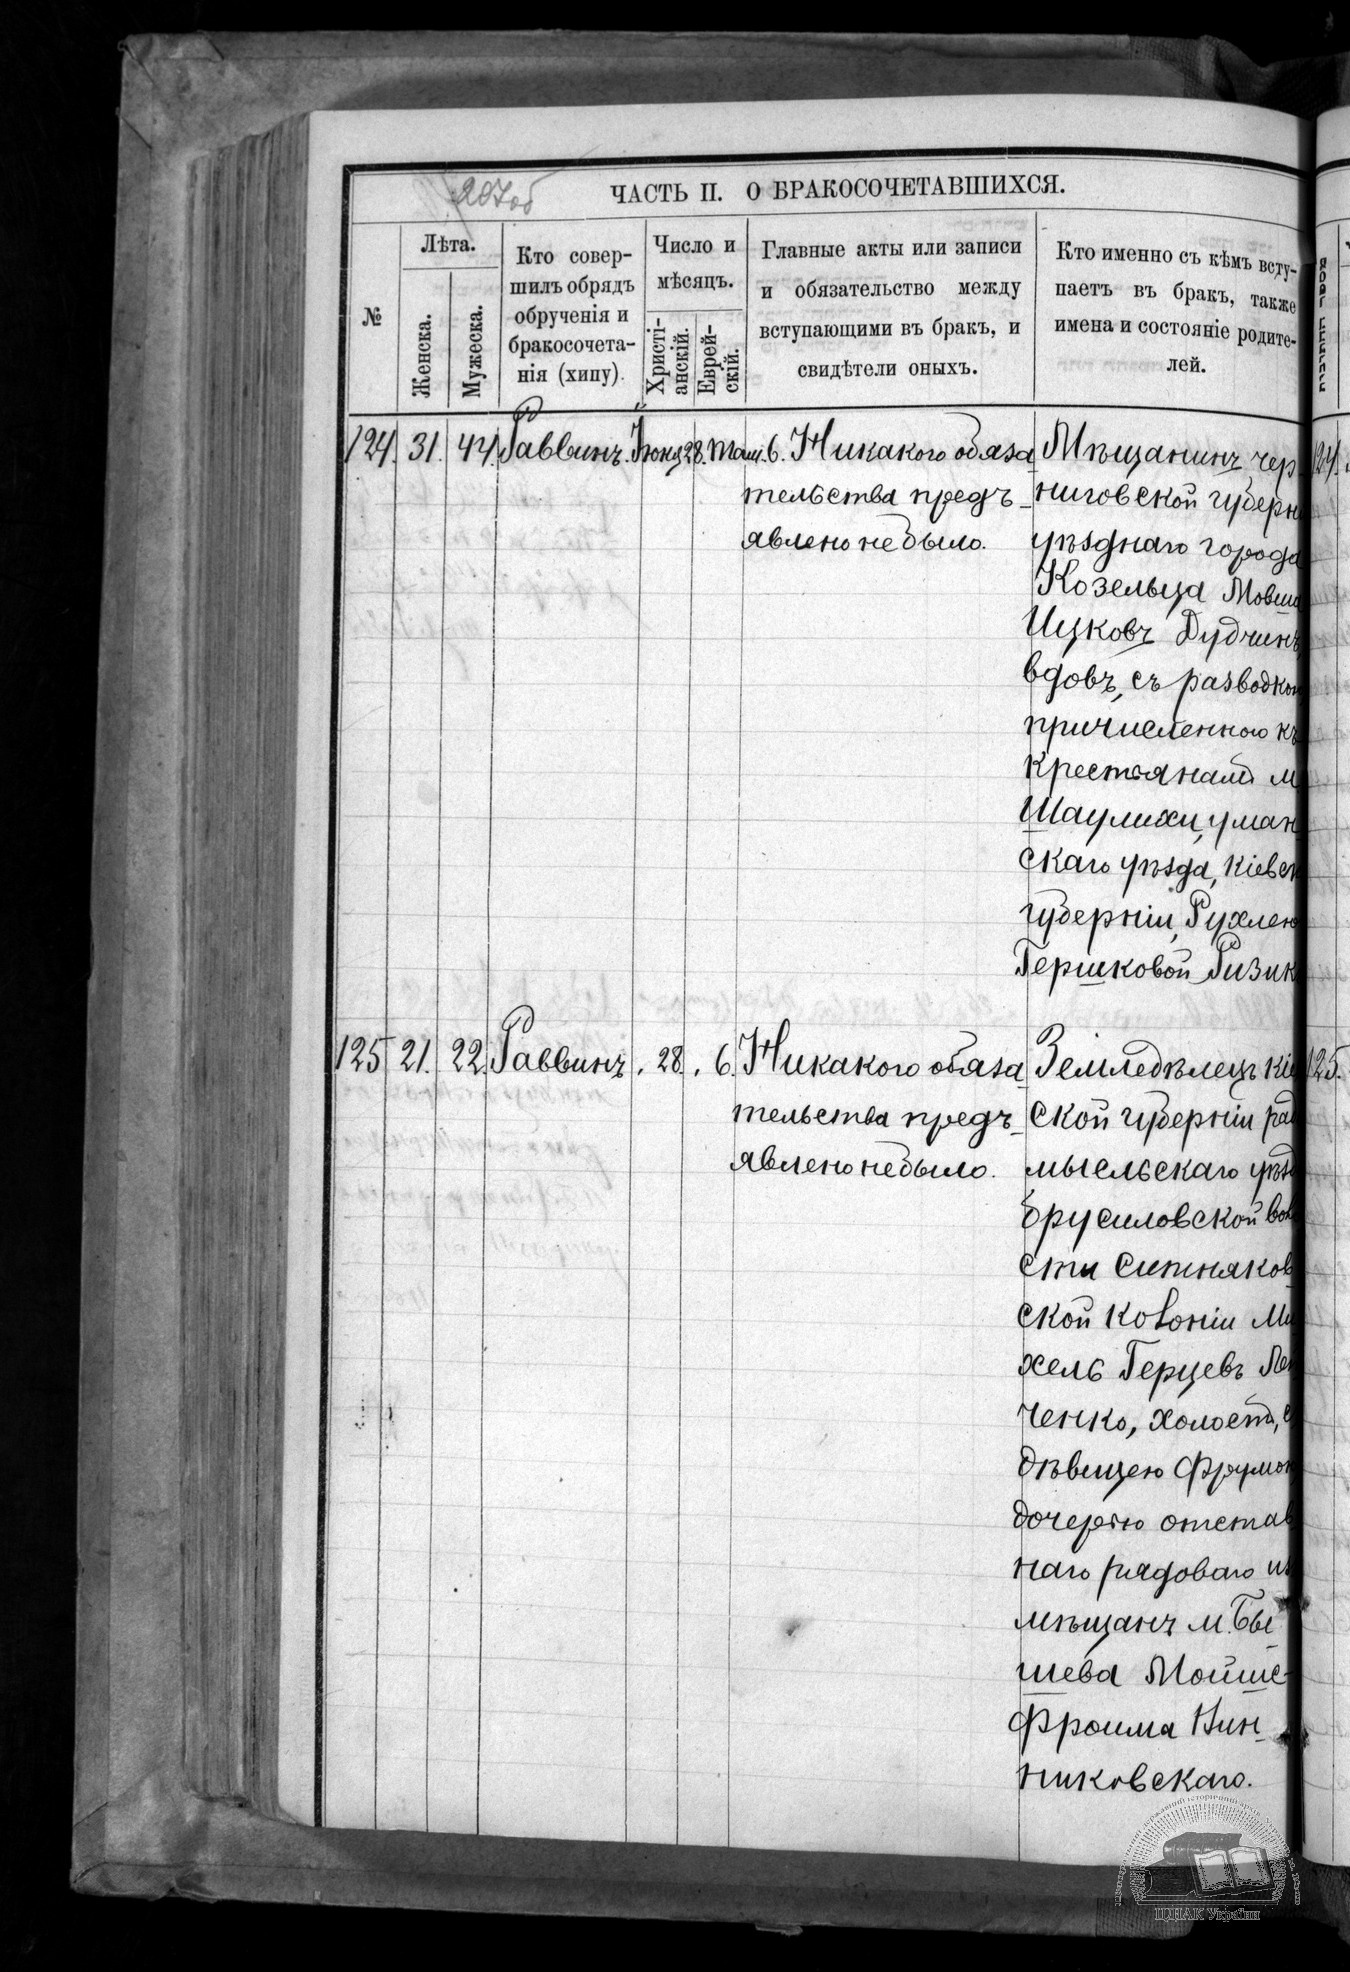 207об
ЧАСТЬ II. О БРАКОСОЧЕТАВШИХСЯ.
№
Лѣта.
Женска.
Мужеска.
Кто совер-
шилъ обрядъ
обрученія и
бракосочета-
нія (хипу).
Число и
мѣсяцъ.
Христі-
анскій.
Еврей-
скій.
Главные акты или записи
и обязательство между
вступающими въ бракъ, и
свидѣтели оныхъ.
Кто именно съ кѣмъ всту-
паетъ въ бракъ, также
имена и состояніе родите-
лей.
124. 31. 44. Раввинъ. 28. Там. 6. Никакого обяза
тельства предъ-
явлено небыло.
Мѣщанинъ чер
ниговской губерн
уѣзднаго города
Козельца Мовша
Ицковъ Дудчинъ,
вдовъ, съ разводкою
причисленною къ
крестьянамъ м
Шаулихи, уман
скаго уѣзда, Кіевск
губерніи, Рухлею
Гершковой Ризик
124.
125 21. 22. Раввинъ. 28. 6. Никакого обяза
тельства предъ-
явлено небыло.
Земледѣлецъ Кіе
ской губерніи рад
мысльскаго уѣзд
брусиловской вол
сти ситняков
ской колоніи Ми
хель Герцевъ
ченко, холост, с
дѣвицею Фрумою
дочерью отстав
наго рядоваго из
мѣщанъ м. Бы
шева Мойше-
Фроима Вин-
никовскаго.
125.
ЦНАК України